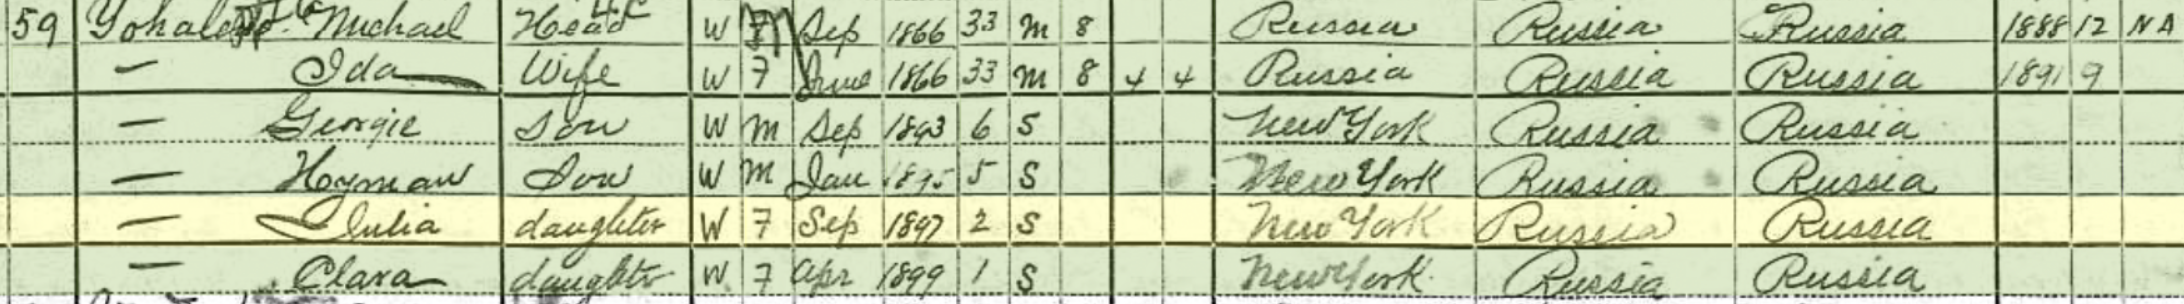 59 Michael Head W M Sep 1866 33 M 8 Russia Russia Russia 1888 12 NA
— Ida Wife W F June 1866 33 M 8 4 4 Russia Russia Russia 1891 9
— Georgie Son W M Sep 1893 6 S New York Russia Russia
— Hoyman Son W M Jan 1895 5 S New York Russia Russia
— Julia daughter W F Sep 1897 2 S New York Russia Russia
— Clara daughter W F Apr 1899 1 S New York Russia Russia